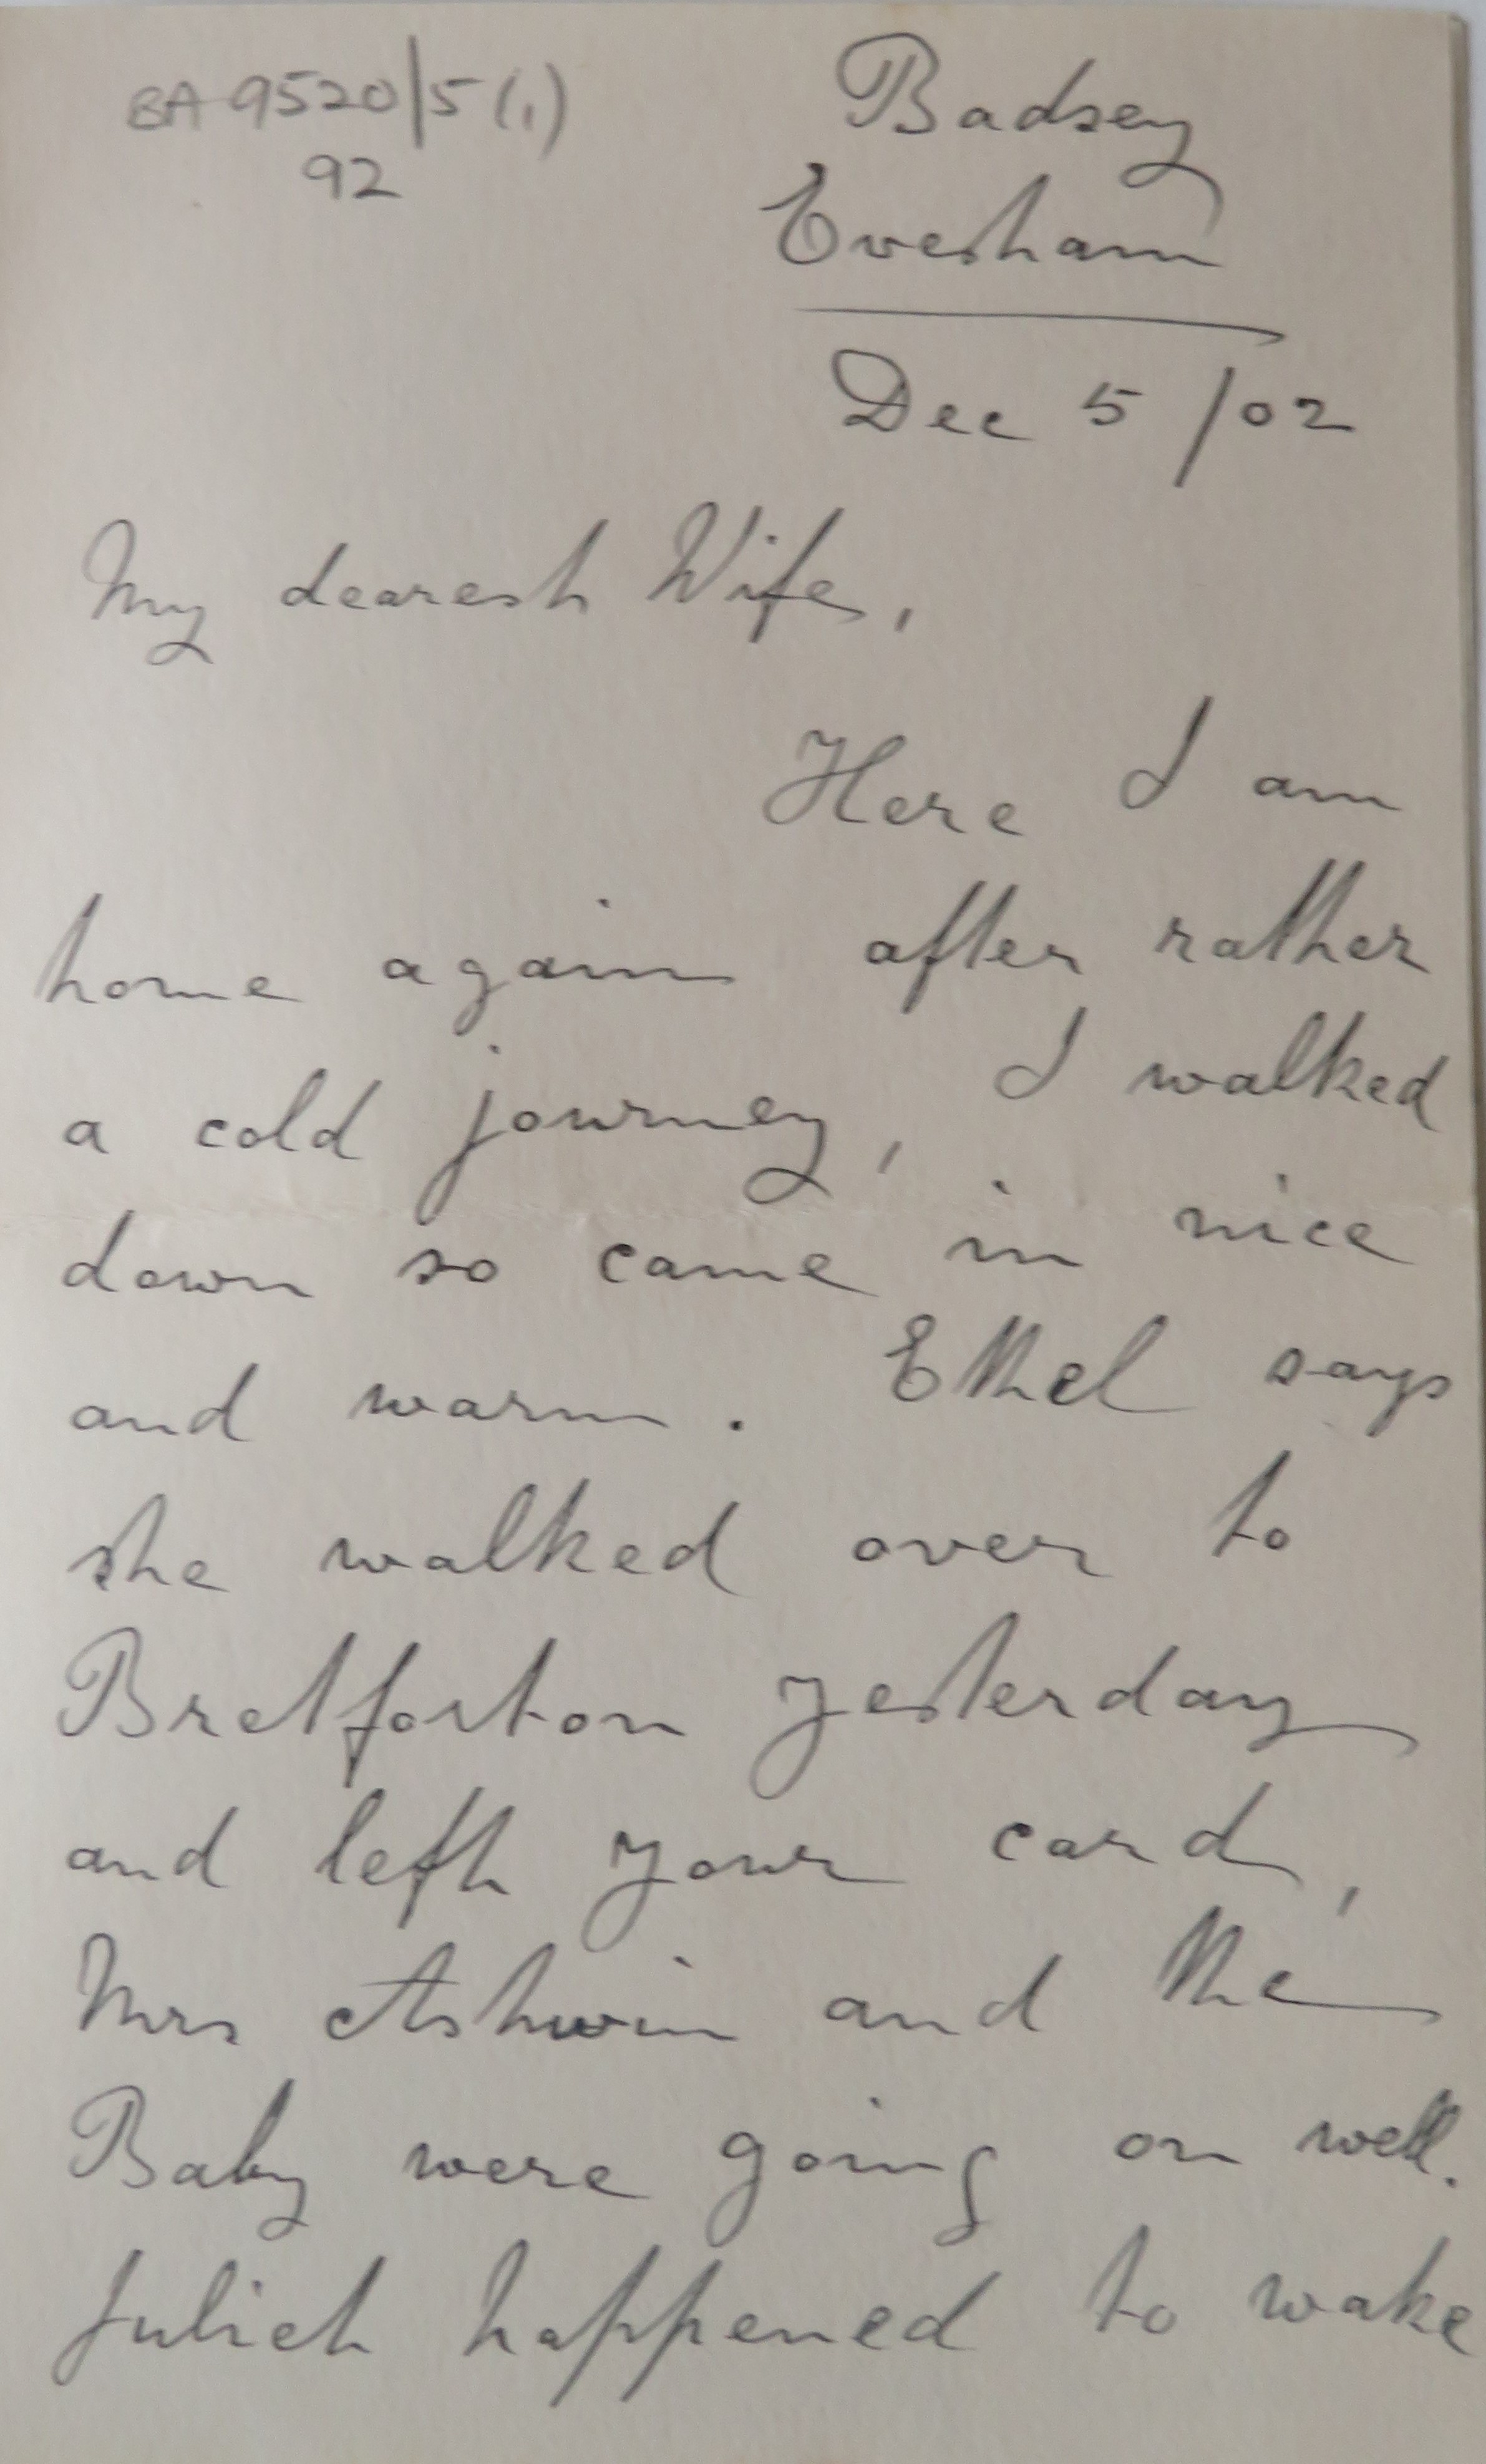 BA 9520/5(1)
92
Badsey
Evesham
Dec 5/02
My dearest Wife,
Here I am
home again after rather
a cold journey, I walked
down so came in nice
and warm. Ethel says
she walked over to
Bretforton yesterday
and left your card,
Mrs Ashwin and the
Baby were going on well.
Juliet happened to wake